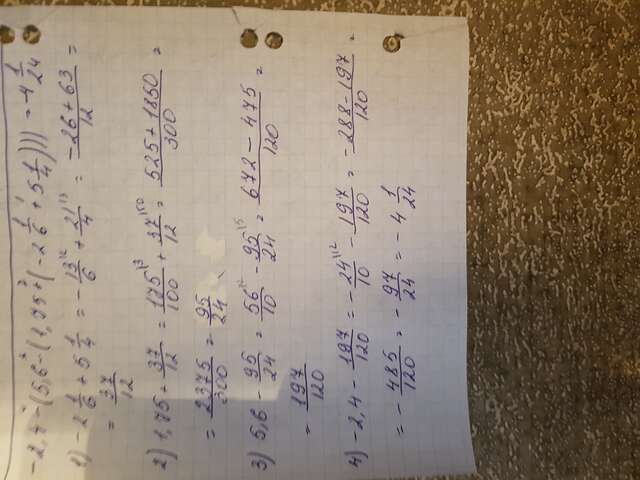 -2,4 - (5,6 - (1,75 + (-2 1/6 + 5 1/4))) = -4 1/24
1) -2 1/6 + 5 1/4 = -13/6 + 21/4 = (-26 + 63)/12 =
= 37/12
2) 1,75 + 37/12 = 175/100 + 37/12 = (525 + 1850)/300 =
= 2375/300 = 95/24
3) 5,6 - 95/24 = 56/10 - 95/24 = (672 - 475)/120 =
= 197/120
4) -2,4 - 197/120 = -24/10 - 197/120 = (-288 - 197)/120 =
= -485/120 = -97/24 = -4 1/24